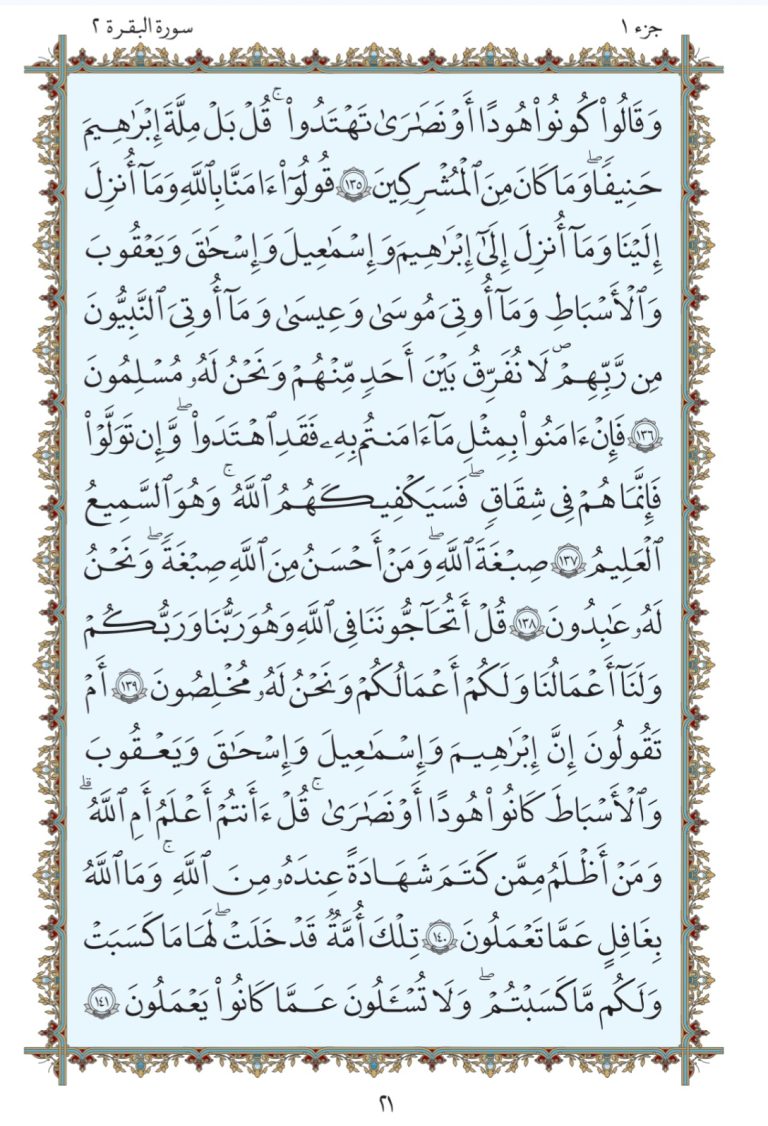 جزء ١
سورة البقرة ٢
وَقَالُوا۟ كُونُوا۟ هُودًا أَوْ نَصَٰرَىٰ تَهْتَدُوا۟ ۚ قُلْ بَلْ مِلَّةَ إِبْرَٰهِـۧمَ
حَنِيفًا ۖ وَمَا كَانَ مِنَ ٱلْمُشْرِكِينَ ١٣٥ قُولُوٓا۟ ءَامَنَّا بِٱللَّهِ وَمَآ أُنزِلَ
إِلَيْنَا وَمَآ أُنزِلَ إِلَىٰٓ إِبْرَٰهِـۧمَ وَإِسْمَٰعِيلَ وَإِسْحَٰقَ وَيَعْقُوبَ
وَٱلْأَسْبَاطِ وَمَآ أُوتِىَ مُوسَىٰ وَعِيسَىٰ وَمَآ أُوتِىَ ٱلنَّبِيُّونَ
مِن رَّبِّهِمْ ۖ لَا نُفَرِّقُ بَيْنَ أَحَدٍ مِّنْهُمْ وَنَحْنُ لَهُۥ مُسْلِمُونَ
١٣٦ فَإِنْ ءَامَنُوا۟ بِمِثْلِ مَآ ءَامَنتُم بِهِۦ فَقَدِ ٱهْتَدَوا۟ ۖ وَّإِن تَوَلَّوْا۟
فَإِنَّمَا هُمْ فِى شِقَاقٍ ۖ فَسَيَكْفِيكَهُمُ ٱللَّهُ ۚ وَهُوَ ٱلسَّمِيعُ
ٱلْعَلِيمُ ١٣٧ صِبْغَةَ ٱللَّهِ ۖ وَمَنْ أَحْسَنُ مِنَ ٱللَّهِ صِبْغَةً ۖ وَنَحْنُ
لَهُۥ عَٰبِدُونَ ١٣٨ قُلْ أَتُحَآجُّونَنَا فِى ٱللَّهِ وَهُوَ رَبُّنَا وَرَبُّكُمْ
وَلَنَآ أَعْمَٰلُنَا وَلَكُمْ أَعْمَٰلُكُمْ وَنَحْنُ لَهُۥ مُخْلِصُونَ ١٣٩ أَمْ
تَقُولُونَ إِنَّ إِبْرَٰهِـۧمَ وَإِسْمَٰعِيلَ وَإِسْحَٰقَ وَيَعْقُوبَ
وَٱلْأَسْبَاطَ كَانُوا۟ هُودًا أَوْ نَصَٰرَىٰ ۚ قُلْ ءَأَنتُمْ أَعْلَمُ أَمِ ٱللَّهُ ۗ
وَمَنْ أَظْلَمُ مِمَّن كَتَمَ شَهَٰدَةً عِندَهُۥ مِنَ ٱللَّهِ ۚ وَمَا ٱللَّهُ
بِغَٰفِلٍ عَمَّا تَعْمَلُونَ ١٤٠ تِلْكَ أُمَّةٌ قَدْ خَلَتْ ۖ لَهَا مَا كَسَبَتْ
وَلَكُم مَّا كَسَبْتُمْ ۖ وَلَا تُسْـَٔلُونَ عَمَّا كَانُوا۟ يَعْمَلُونَ ١٤١
٢١